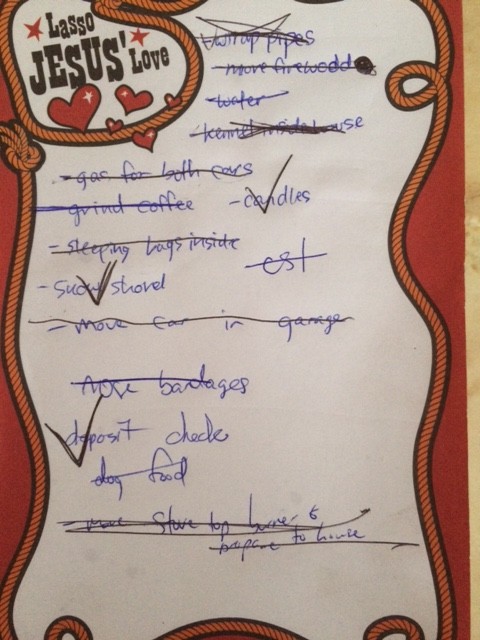 Lasso
JESUS'
Love
wrap pipes
- move firewood
- water
- kennel inside house
- gas for both cars
- grind coffee
- candles
- sleeping bags inside
est
- snow shovel
- move car in garage
more bandages
deposit check
dog food
- move stove top burner &
propane to house